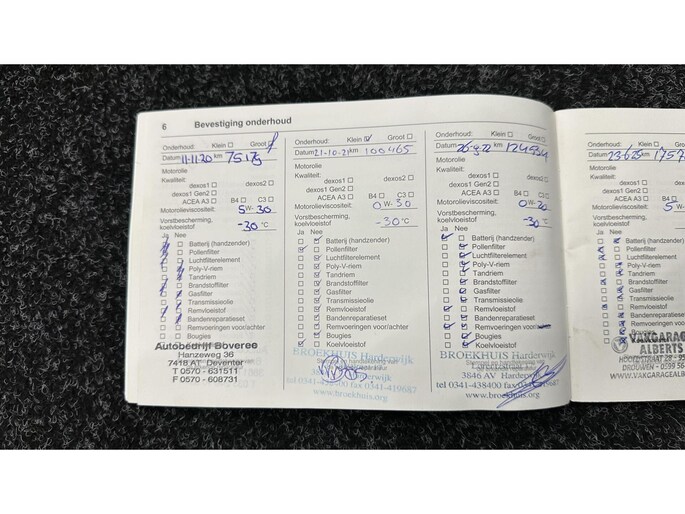 6 Bevestiging onderhoud
Onderhoud: Klein Groot
Datum 11-11-20 km 75175
Motorolie
Kwaliteit:
dexos1 dexos2
dexos1 Gen2
ACEA A3 B4 C3
Motorolieviscositeit: 5 W- 30
Vorstbescherming,
koelvloeistof -30 °C
Ja Nee
Batterij (handzender)
Pollenfilter
Luchtfilterelement
Poly-V-riem
Tandriem
Brandstoffilter
Gasfilter
Transmissieolie
Remvloeistof
Bandenreparatieset
Remvoeringen voor/achter
Autobedrijf Boveree
Hanzeweg 36
7418 AT Deventer
T 0570 - 631511
F 0570 - 608731
Onderhoud: Klein Groot
Datum 21-10-21 km 100465
Motorolie
Kwaliteit:
dexos1 dexos2
dexos1 Gen2
ACEA A3 B4 C3
Motorolieviscositeit: 0 W- 30
Vorstbescherming,
koelvloeistof -30 °C
Ja Nee
Batterij (handzender)
Pollenfilter
Luchtfilterelement
Poly-V-riem
Tandriem
Brandstoffilter
Gasfilter
Transmissieolie
Remvloeistof
Bandenreparatieset
Remvoeringen voor/achter
Bougies
Koelvloeistof
BROEKHUIS Harderwijk
tel 0341-438400 fax 0341-419687
www.broekhuis.org
Onderhoud: Klein Groot
Datum 26-9-22 km 124534
Motorolie
Kwaliteit:
dexos1 dexos2
dexos1 Gen2
ACEA A3 B4 C3
Motorolieviscositeit: 0 W- 20
Vorstbescherming,
koelvloeistof -30 °C
Ja Nee
Batterij (handzender)
Pollenfilter
Luchtfilterelement
Poly-V-riem
Tandriem
Brandstoffilter
Gasfilter
Transmissieolie
Remvloeistof
Bandenreparatieset
Remvoeringen voor/
Bougies
Koelvloeistof
BROEKHUIS Harderwijk
3846 AV Harderwijk
tel 0341-438400 fax 0341-419687
www.broekhuis.org
Onderhoud:
Datum 23-6-25 km 1757
Motorolie
Kwaliteit:
dexos1
dexos1 Gen2
ACEA A3
Motorolieviscositeit: 5 W
Vorstbescherming,
koelvloeistof
Ja Nee
Batterij (handz
Pollenfilter
Luchtfilterelem
Poly-V-riem
Tandriem
Brandstoffilter
Gasfilter
Transmissieol
Remvloeistof
Bandenrepara
Remvoeringen
Bougies
VAKGARAGE
ALBERTS
HOOFDSTRAAT
DROUWEN - 0599 56
WWW.VAKGARAGEAL